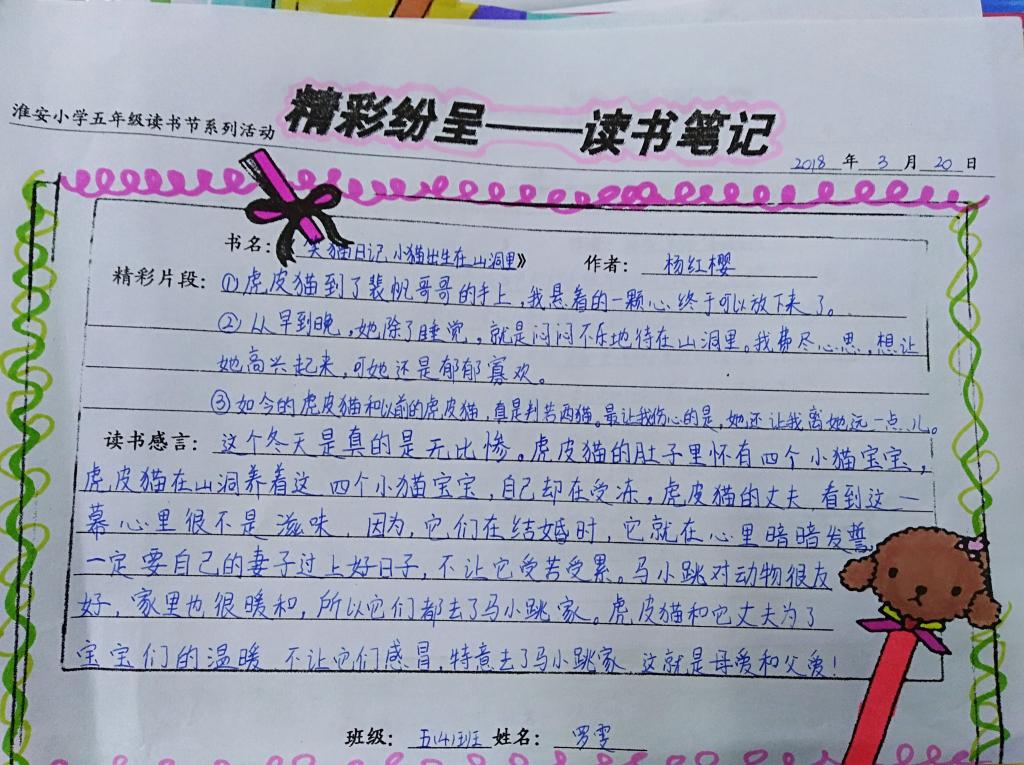 淮安小学五年级读书节系列活动
精彩纷呈——读书笔记
2018 年 3 月 20 日
书名：《笑猫日记 小猫出生在山洞里》 作者：杨红樱
精彩片段：①虎皮猫到了裴帆哥哥的手上，我悬着的一颗心终于可以放下来了。
②从早到晚，她除了睡觉，就是闷闷不乐地待在山洞里。我费尽心思，想让
她高兴起来，可她还是郁郁寡欢。
③如今的虎皮猫和以前的虎皮猫，真是判若两猫。最让我伤心的是，她还让我离她远一点儿。
读书感言：这个冬天是真的是无比惨。虎皮猫的肚子里怀有四个小猫宝宝，
虎皮猫在山洞养着这四个小猫宝宝，自己却在受冻，虎皮猫的丈夫看到这一
幕心里很不是滋味，因为，它们在结婚时，它就在心里暗暗发誓
一定要自己的妻子过上好日子，不让它受苦受累。马小跳对动物很友
好，家里也很暖和，所以它们都去了马小跳家。虎皮猫和它丈夫为了
宝宝们的温暖 不让它们感冒，特意去了马小跳家，这就是母爱和父爱！
班级：五（4）班 姓名：罗雯